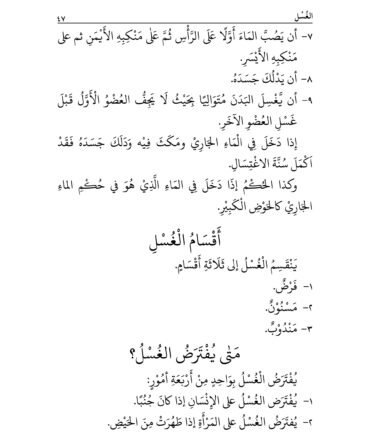 الغُسْل ٤٧
٧- أن يَصُبَّ المَاءَ أَوَّلًا عَلَى الرَّأْسِ ثُمَّ عَلٰى مَنْكِبِهِ الأَيْمَنِ ثم على
مَنْكِبِهِ الأَيْسَرِ.
٨- أن يَدْلُكَ جَسَدَهُ.
٩- أن يَّغْسِلَ البَدَنَ مُتَوَالِيًا بِحَيْثُ لَا يَجِفُّ العُضْوُ الْأَوَّلُ قَبْلَ
غَسْلِ العُضْوِ الآخَرِ.
إذا دَخَلَ فِي الْمَاءِ الجَارِيْ ومَكَثَ فِيْه وَدَلَكَ جَسَدَهُ فَقَدْ
اَكْمَلَ سُنَّةَ الاغْتِسَالِ.
وكذا الحُكْمُ إذَا دَخَلَ فِي المَاءِ الَّذِيْ هُوَ فِي حُكْمِ الماءِ
الجَارِيْ كالحَوْضِ الْكَبِيْرِ.
أَقْسَامُ الْغُسْلِ
يَنْقَسِمُ الْغُسْلُ إلى ثَلَاثَةِ أَقْسَامٍ.
١- فَرْضٌ.
٢- مَسْنُوْنٌ.
٣- مَنْدُوْبٌ.
مَتٰى يُفْتَرَضُ الغُسْلُ؟
يُفْتَرَضُ الْغُسْلُ بِوَاحِدٍ مِنْ أَرْبَعَةِ أمُوْرٍ:
١- يُفْتَرَضُ الغُسْلُ على الإِنْسَانِ إذا كانَ جُنُبًا.
٢- يُفتَرَضُ الغُسْلُ على المَرْأَةِ إذا طَهُرَتْ مِنَ الحَيْضِ.